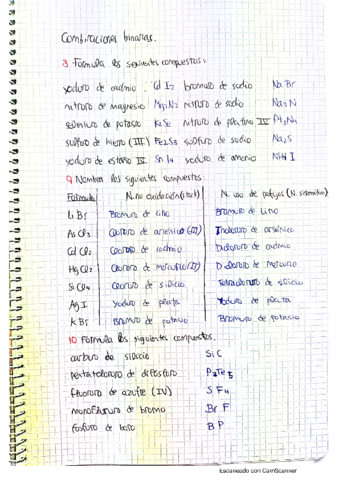 Combinaciones binarias.
3 Formula los siguientes compuestos:
yoduro de cadmio. Cd I2 bromuro de sodio Na Br
nitruro de magnesio Mg3N2 nitruro de sodio Na3N
seleniuro de potasio K2Se nitruro de platino IV Pt3N4
sulfuro de hierro (III) Fe2S3 sulfuro de sodio Na2S
yoduro de estaño IV Sn I4 yoduro de amonio NH4 I
9 Nombra los siguientes compuestos
Fórmula N. no oxidación (stock) N. uso de prefijos (N. sistemática)
Li Br Bromuro de litio Bromuro de Litio
As Cl3 Cloruro de arsénico (III) Tricloruro de arsénico
Cd Cl2 Cloruro de cadmio Dicloruro de cadmio
Hg Cl2 Cloruro de mercurio (II) Dicloruro de Mercurio
Si Cl4 Cloruro de silicio Tetracloruro de silicio
Ag I Yoduro de plata Yoduro de plata
K Br Bromuro de potasio Bromuro de potasio
10 Formula los siguientes compuestos.
carburo de silicio Si C
pentatelururo de difósforo P2Te5
fluoruro de azufre (IV) S F4
monofluoruro de bromo Br F
fosfuro de boro B P
Escaneado con CamScanner